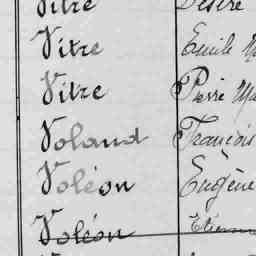 Vitre Désiré
Vitre Emile
Vitre Pierre
Voland François
Voléon Eugène
Voléon Etienne